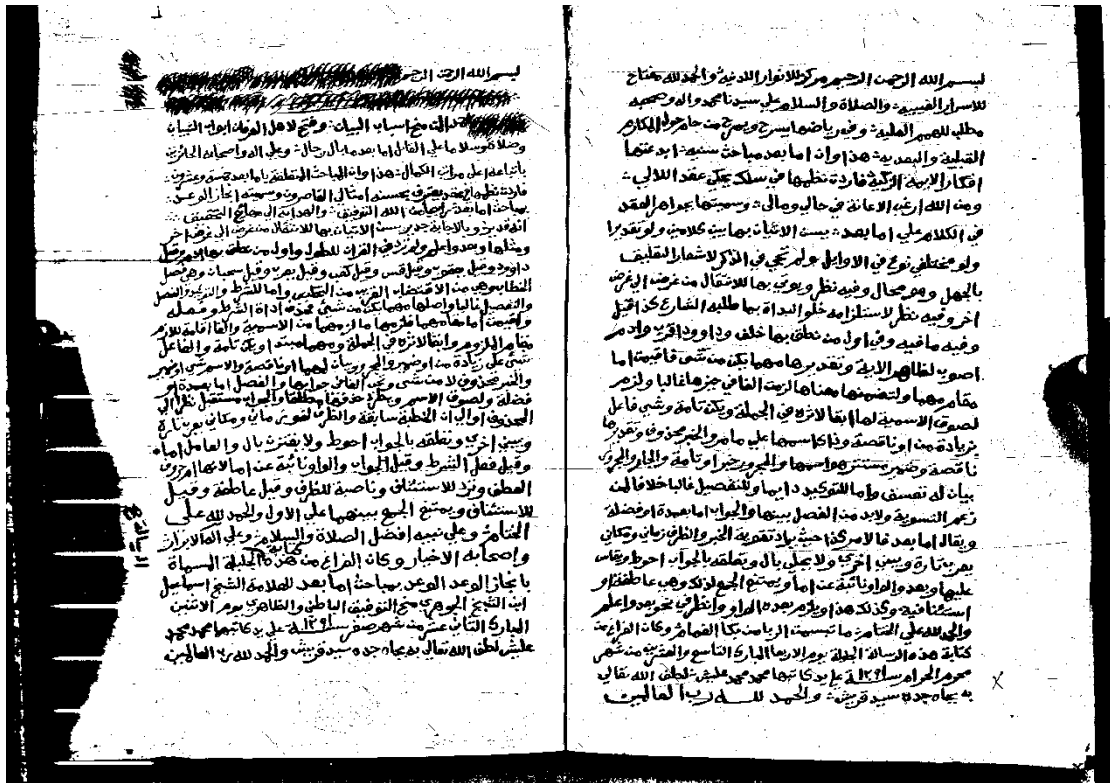 بسم الله الرحمن الرحيم مركز للانوار اللدنية والحمد لله مفتاح
للاسرار الغيبية والصلاة والسلام علي سيدنا محمد واله وصحبه
مطلب للهمم العلية وفي رياضها يسرح ويمرح من حام حول المكارم
القبلية والبعدية هذا وان اما بعد مباحث سنية ابدعتها
افكار الايمة الزكية فاردت نظمها في سلك يحكي عقد اللآلي
ومن الله ارغب الاعانة في حالي ومالي وسميتها بجواهر العقد
في الكلام علي اما بعد يسن الاتيان بها بين كلامين ولو تقديرا
ولو مختلفي نوع في الاوايل ولم تجي في الذكر لاشعار التقليف
بالجهل وهو محال وفيه نظر ويوتي بها للانتقال من غرض الي غرض
اخر وفيه نظر لاستلزامه خلو البداة بما طلبه الشارع كذا قيل
وفيه ما فيه وفي اول من نطق بها خلف وداوود اقرب وادم
اصوب لظاهر الاية وتقديرها مهما يكن من شي فاقيمت اما
مقام مهما ولتضمنها معناها لزمت الفا في حيزها غالبا ولزم
لصوق الاسمية لها ابقا لاثره في الجملة ويكن تامة وشي فاعل
بزيادة من او ناقصة وذا اسمها علي مامر والخبر محذوف وتقديرها
ناقصة وضمير يستتر هو اسمها والمجرور خبر او تامة والجار والمجرور
بيان له تعسف واما للتوكيد دايما وللتفصيل غالبا خلافا لمن
زعم التسوية ولا بد من الفصل بينها والجواب اما بعمدة او فضلة
ويقال اما بعد فالامر كذا حيث يراد تقوية الخبر والظرف زماني ومكاني
يعرب تارة ويبني اخري ولا يحلي بال وتعلقه بالجواب احوط ويقاس
عليها وبعد والواو نائبة عن اما ويمتنع الجمع لذلك وهي عاطفة او
استئنافية وكذلك هذا ويلزم بعده الواو وانظر في نحو بعد واعلم
والحمد لله علي الختام ما تبسمت الربا من بكا الغمام وكان الفراغ من
كتابة هذه الرسالة الجليلة يوم الاربعا المبارك التاسع والعشرين من شهر
محرم الحرام سنة ١٢٩١ علي يد كاتبها محمد محمد عليش لطف الله تعالي
به بجاه جده سيد قريش والحمد لله رب العالمين
بسم الله الرحمن الرحيم
منح اسباب البيان وفتح لاهل العرفان ابواب التبيان
وصلاة وسلاما علي القائل اما بعد ما بال رجال وعلي اله واصحابه الحائزين
باتباعه اعلي مراتب الكمال هذا وان المباحث المتعلقة باما بعد خمسة وعشرون
فاردت نظمها يعترف بحسنه امثالي القاصرون وسميته انجاز الوعد
بمباحث اما بعد راجيا من الله التوفيق والهداية الي مفاتح التحقيق
انه قدير وبالاجابة جدير يسن الاتيان بها للانتقال من غرض الي غرض اخر
ومثلها وبعد واعلم ولم ترد في القران للطول واول من نطق بها ادم وقيل
داوود وقيل يعقوب وقيل قس وقيل كعب وقيل يعرب وقيل سحبان وهي فصل
الخطاب وهي من الاقتضاب القريب من التخلص واما للشرط والتوكيد والفصل
والتفصيل غالبا واصلها مهما يكن من شي فحذف اداة الشرط وفعله
واقيمت اما مقامهما فلزمها ما لزمهما من الاسمية والفا اقامة للازم
مقام الملزوم وابقا لاثره في الجملة ومهما مبتدا ويكن تامة والفاعل
شي علي زيادة من او ضمير والمجرور بيان لمهما او ناقصة والاسم شي او ضمير
والخبر محذوف لا من شي وتجب الفا في جوابها والفصل اما بعمدة او
فضلة ولصوق الاسم ويطرد حذفها مطلقا والجواب مستقبل نظرا الي
المحذوف او الي ان الخطبة سابقة والظرف لغو زماني ومكاني يعرب تارة
ويبني اخري وتعلقه بالجواب احوط ولا يقترن بال والعامل اما
وقيل فعل الشرط وقيل الجواب والواو نائبة عن اما لانها ام حروف
العطف وترد للاستئناف وناصبة للظرف وقيل عاطفة وقيل
للاستئناف ويمتنع الجمع بينهما علي الاول والحمد لله علي
الختام وعلي نبيه افضل الصلاة والسلام وعلي اله الابرار
واصحابه الاخيار وكان الفراغ من كتابة هذه الجليلة المسماة
بانجاز الوعد بمباحث اما بعد للعلامة الشيخ اسماعيل
ابن الشيخ الجوهري منح التوفيق الباطن والظاهر يوم الاثنين
المبارك الثاني عشر من شهر صفر سنة ١٢٩١ علي يد كاتبها محمد محمد
عليش لطف الله تعالي به بجاه جده سيد قريش والحمد لله رب العالمين